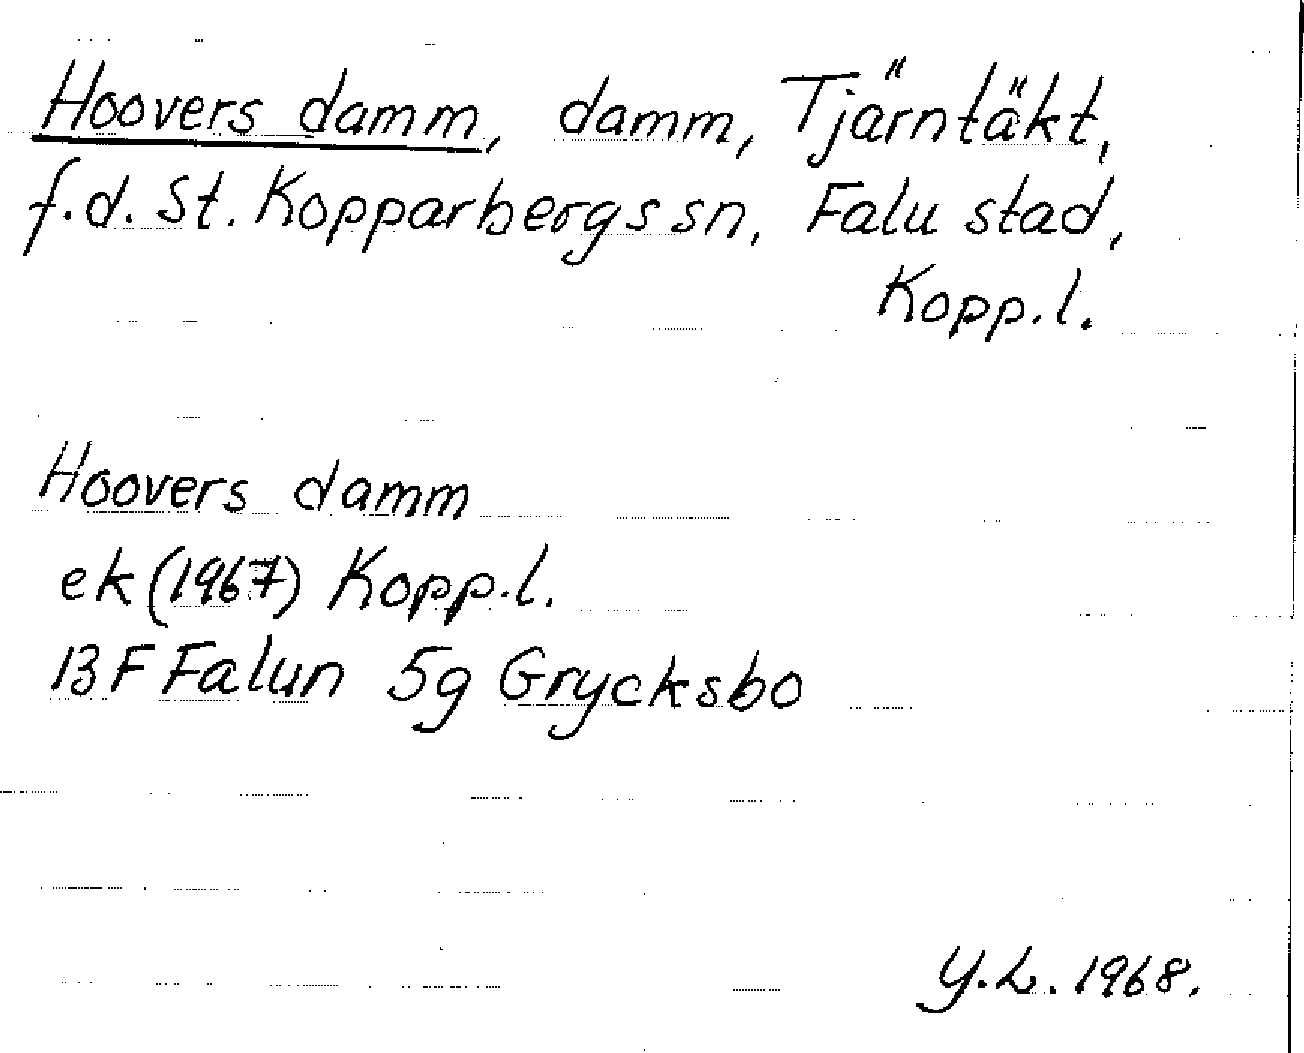 Hoovers damm, damm, Tjärntäkt,
f.d. St. Kopparbergs sn, Falu stad,
Kopp.l.
Hoovers damm
ek (1967) Kopp.l.
13F Falun 5g Grycksbo
Y.L. 1968.